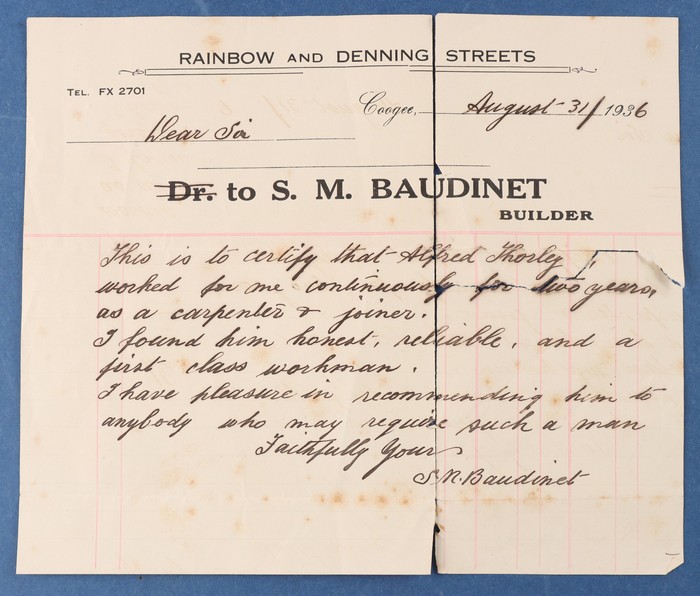 RAINBOW AND DENNING STREETS
TEL. FX 2701
Coogee, August 31/1936
Dear Sir
Dr. to S. M. BAUDINET
BUILDER
This is to certify that Alfred Thorley
worked for me continuously for two years,
as a carpenter & joiner.
I found him honest, reliable, and a
first class workman.
I have pleasure in recommending him to
anybody who may require such a man
Faithfully Yours
S. M. Baudinet